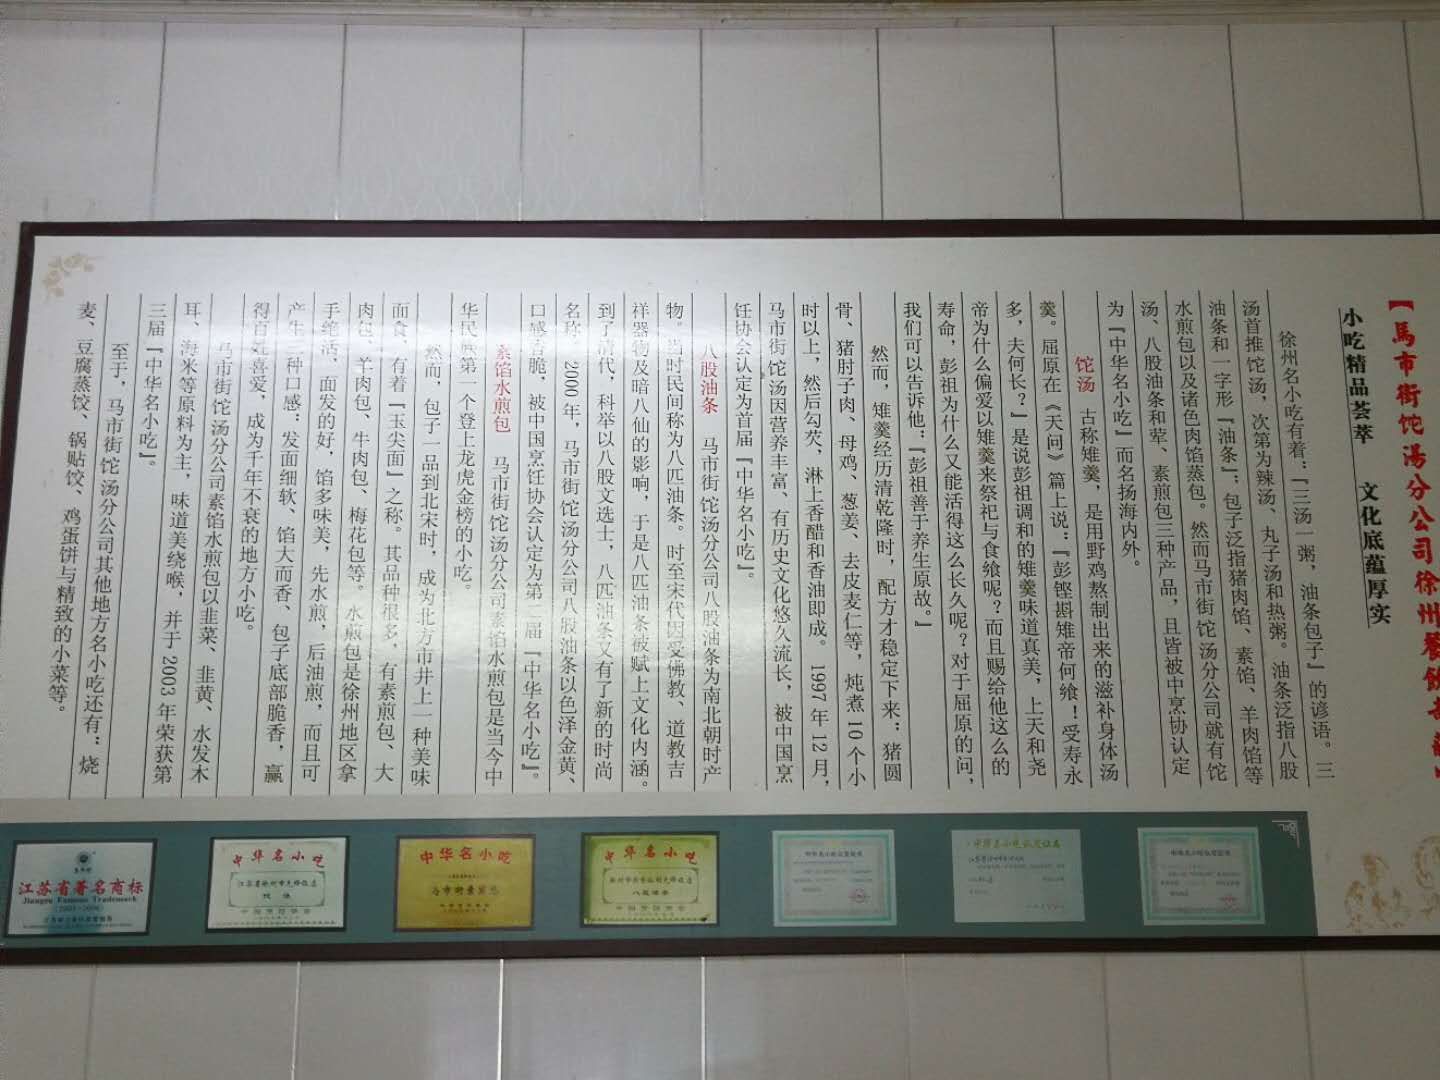 【馬市街饣它汤分公司徐州餐饮
小吃精品荟萃 文化底蕴厚实
徐州名小吃有着：『三汤一粥，油条包子』的谚语。三
汤首推饣它汤，次第为辣汤、丸子汤和热粥。油条泛指八股
油条和一字形『油条』；包子泛指猪肉馅、素馅、羊肉馅等
水煎包以及诸色肉馅蒸包。然而马市街饣它汤分公司就有饣它
汤、八股油条和荤、素煎包三种产品，且皆被中烹协认定
为『中华名小吃』而名扬海内外。
饣它汤 古称雉羹，是用野鸡熬制出来的滋补身体汤
羹。屈原在《天问》篇上说：『彭铿斟雉帝何飨！受寿永
多，夫何长？』是说彭祖调和的雉羹味道真美，上天和尧
帝为什么偏爱以雉羹来祭祀与食飨呢？而且赐给他这么的
寿命，彭祖为什么又能活得这么长久呢？对于屈原的问，
我们可以告诉他：『彭祖善于养生原故。』
然而，雉羹经历清乾隆时，配方才稳定下来：猪圆
骨、猪肘子肉、母鸡、葱姜、去皮麦仁等，炖煮10个小
时以上，然后勾芡，淋上香醋和香油即成。1997年12月，
马市街饣它汤因营养丰富、有历史文化悠久流长，被中国烹
饪协会认定为首届『中华名小吃』。
八股油条 马市街饣它汤分公司八股油条为南北朝时产
物。当时民间称为八匹油条。时至宋代因受佛教、道教吉
祥器物及暗八仙的影响，于是八匹油条被赋上文化内涵。
到了清代，科举以八股文选士，八匹油条又有了新的时尚
名称。2000年，马市街饣它汤分公司八股油条以色泽金黄、
口感香脆，被中国烹饪协会认定为第二届『中华名小吃』。
素馅水煎包 马市街饣它汤分公司素馅水煎包是当今中
华民族第一个登上龙虎金榜的小吃。
然而，包子一品到北宋时，成为北方市井上一种美味
面食，有着『玉尖面』之称。其品种很多，有素煎包、大
肉包、羊肉包、牛肉包、梅花包等。水煎包是徐州地区拿
手绝活，面发的好，馅多味美，先水煎，后油煎，而且可
产生三种口感：发面细软、馅大而香、包子底部脆香，赢
得百姓喜爱，成为千年不衰的地方小吃。
马市街饣它汤分公司素馅水煎包以韭菜、韭黄、水发木
耳、海米等原料为主，味道美绕喉，并于2003年荣获第
三届『中华名小吃』。
至于，马市街饣它汤分公司其他地方名小吃还有：烧
麦、豆腐蒸饺、锅贴饺、鸡蛋饼与精致的小菜等。
江苏省著名商标
Jiangsu Famous Trademark
中华名小吃
中华名小吃
中华名小吃
八股油条